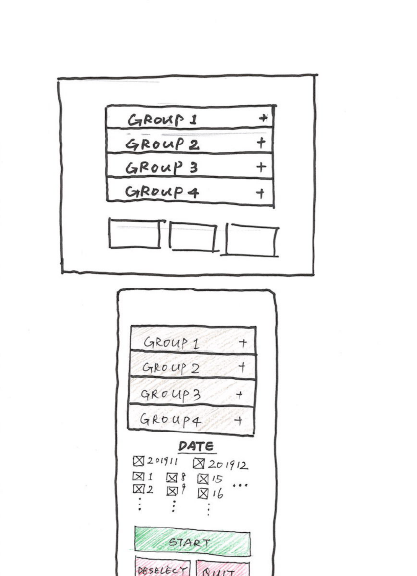 GROUP 1 +
GROUP 2 +
GROUP 3 +
GROUP 4 +
GROUP 1 +
GROUP 2 +
GROUP 3 +
GROUP 4 +
DATE
☒ 201911 ☒ 201912
☒ 1 ☒ 8 ☒ 15 ...
☒ 2 ☒ 9 ☒ 16
⋮ ⋮ ⋮
START
DESELECT QUIT